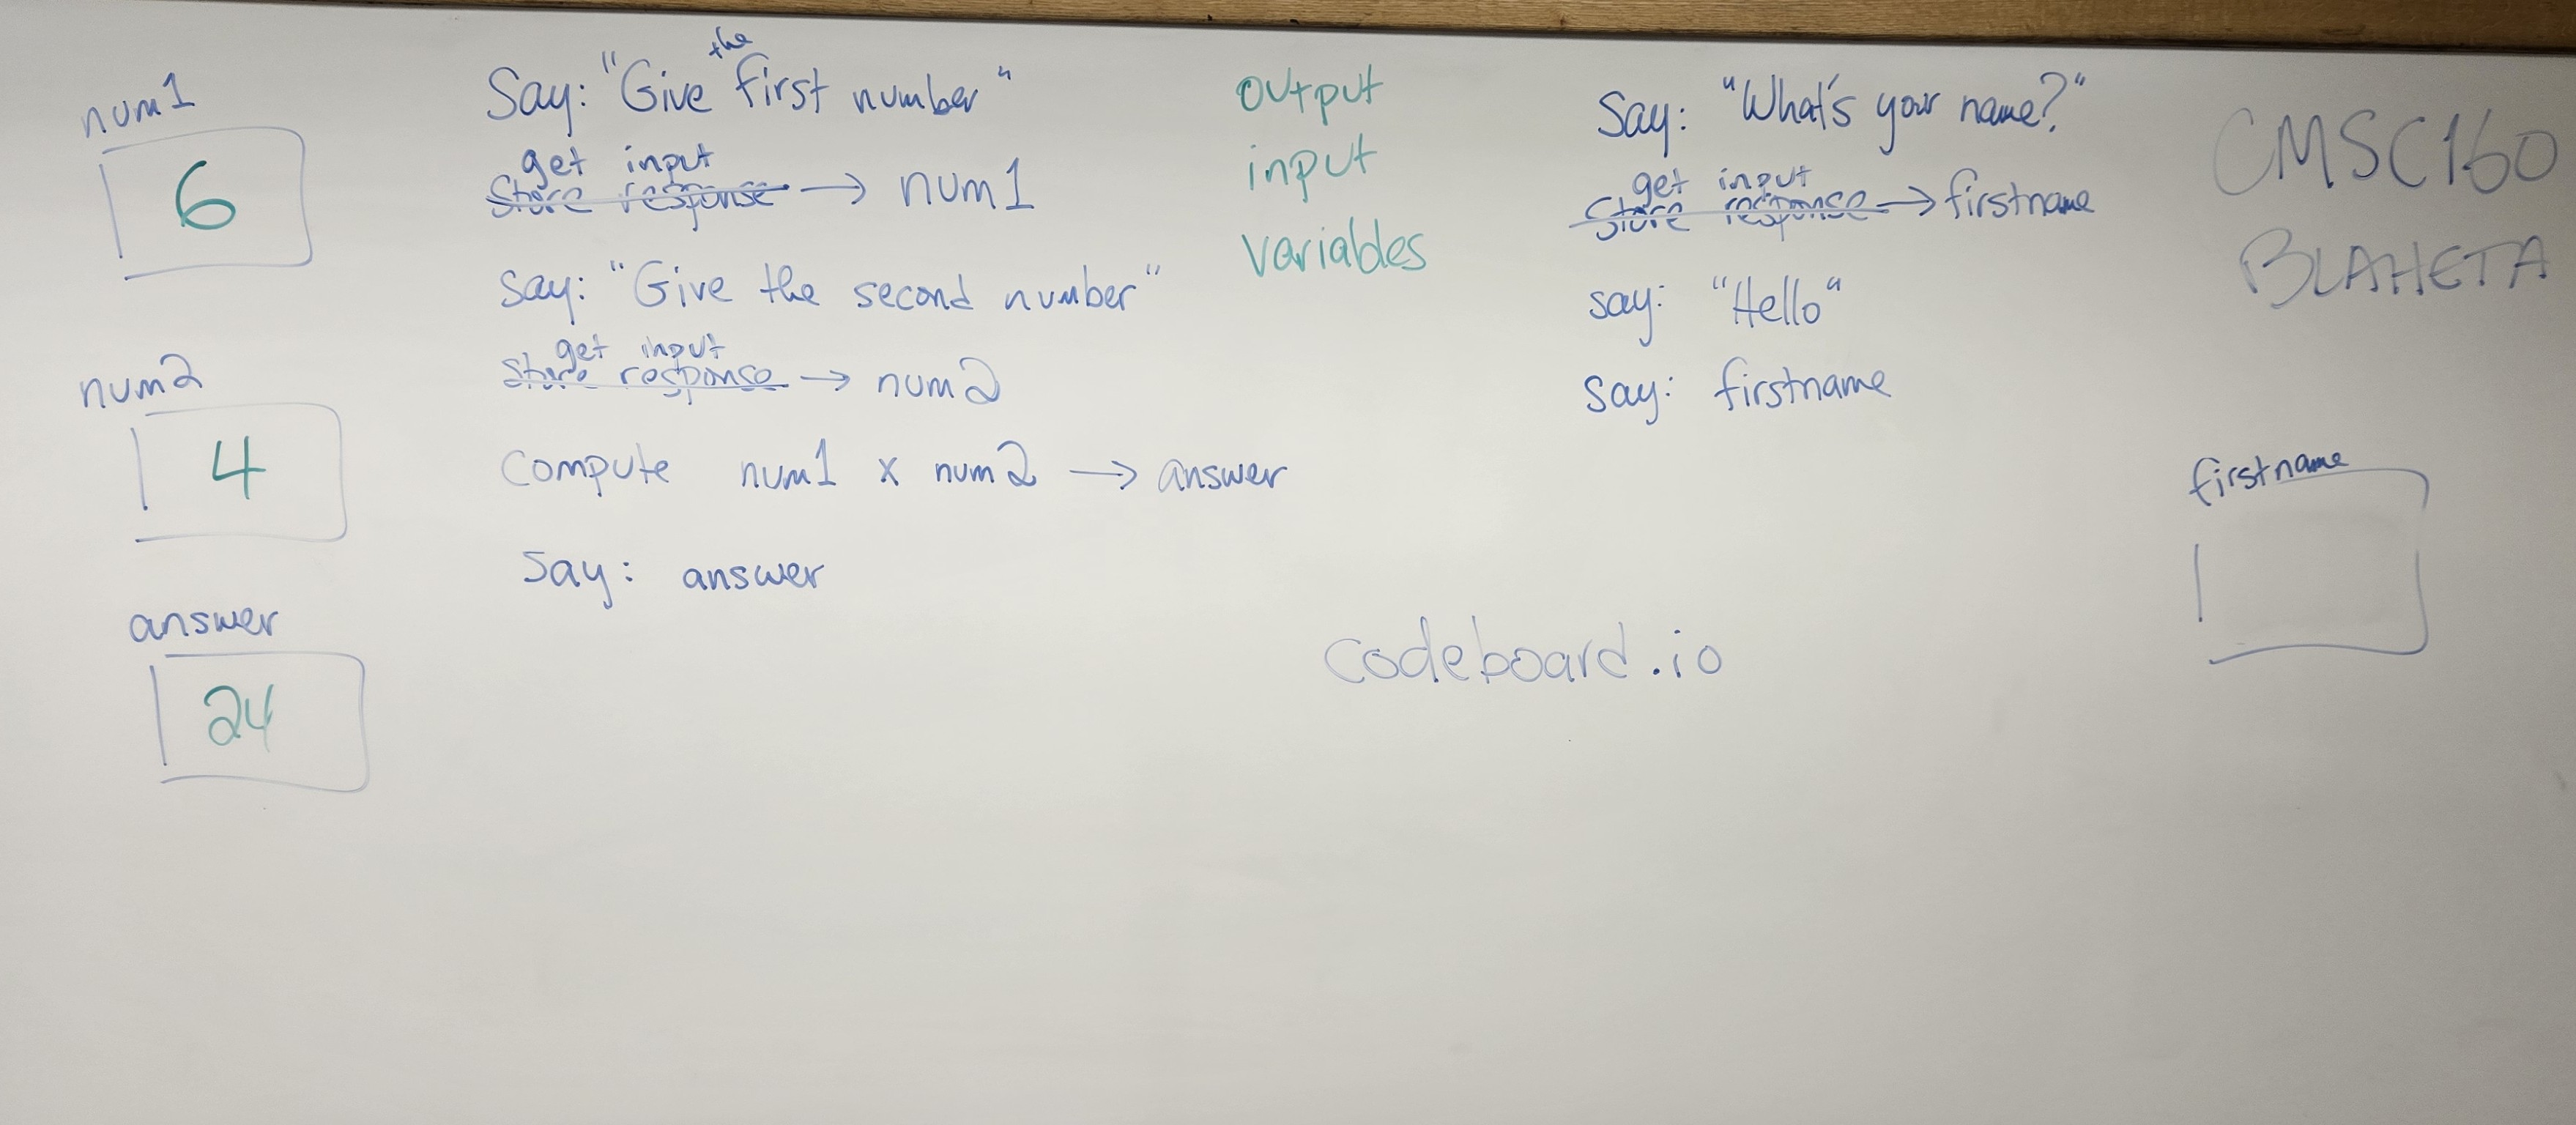 num1
6
num2
4
answer
24
Say: "Give the first number"
get input
Store response → num1
Say: "Give the second number"
get input
Store response → num2
Compute num1 x num2 → answer
Say: answer
output
input
variables
Say: "What's your name?"
get input
Store response → firstname
say: "Hello"
say: firstname
codeboard.io
CMSC160
BLAHETA
firstname